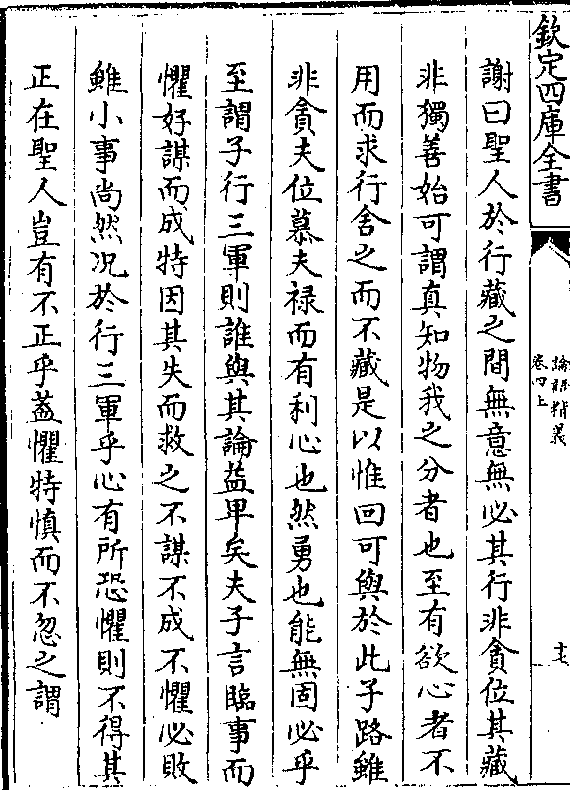 欽定四庫全書
論語精義
卷四上
十七
謝曰聖人於行藏之間無意無必其行非貪位其藏
非獨善始可謂真知物我之分者也至有欲心者不
用而求行舍之而不藏是以惟回可與於此子路雖
非貪夫位慕夫禄而有利心也然勇也能無固必乎
至謂子行三軍則誰與其論益卑矣夫子言臨事而
懼好謀而成特因其失而救之不謀不成不懼必敗
雖小事尚然况於行三軍乎心有所恐懼則不得其
正在聖人豈有不正乎葢懼特慎而不忽之謂